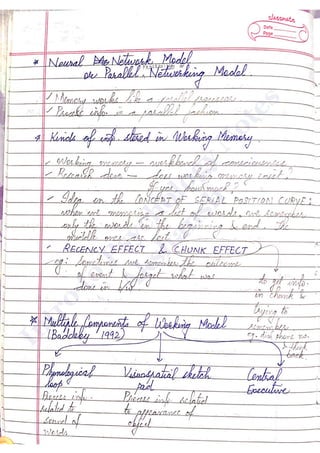 classmate
Date
Page
* Neural Network Model
or Parallel Networking Model.
✓ Memory works like a parallel processor
✓ info. in a parallel fashion
* Kinds of inf. stored in Working Memory
✓ Working memory - workbench of consciousness
✓ Research done - does working memory exist?
If yes, how much?
✓ Idea on the CONCEPT OF SERIAL POSITION CURVE:
when we memorise a list of words, we remember
only the words in the beginning & end. The
middle ones are lost
✓ RECENCY EFFECT & CHUNK EFFECT
eg: sometimes we remember the outcome
of event & forget what was
done in
to get info.
in chunk &
trying to
remember
eg. phone no.
back
* Multiple Components of Working Model
(Baddeley 1992)
Phonological loop
Visuospatial sketch pad
Central Executive
Process inf. related to sound of words
Process info related to appearance of object